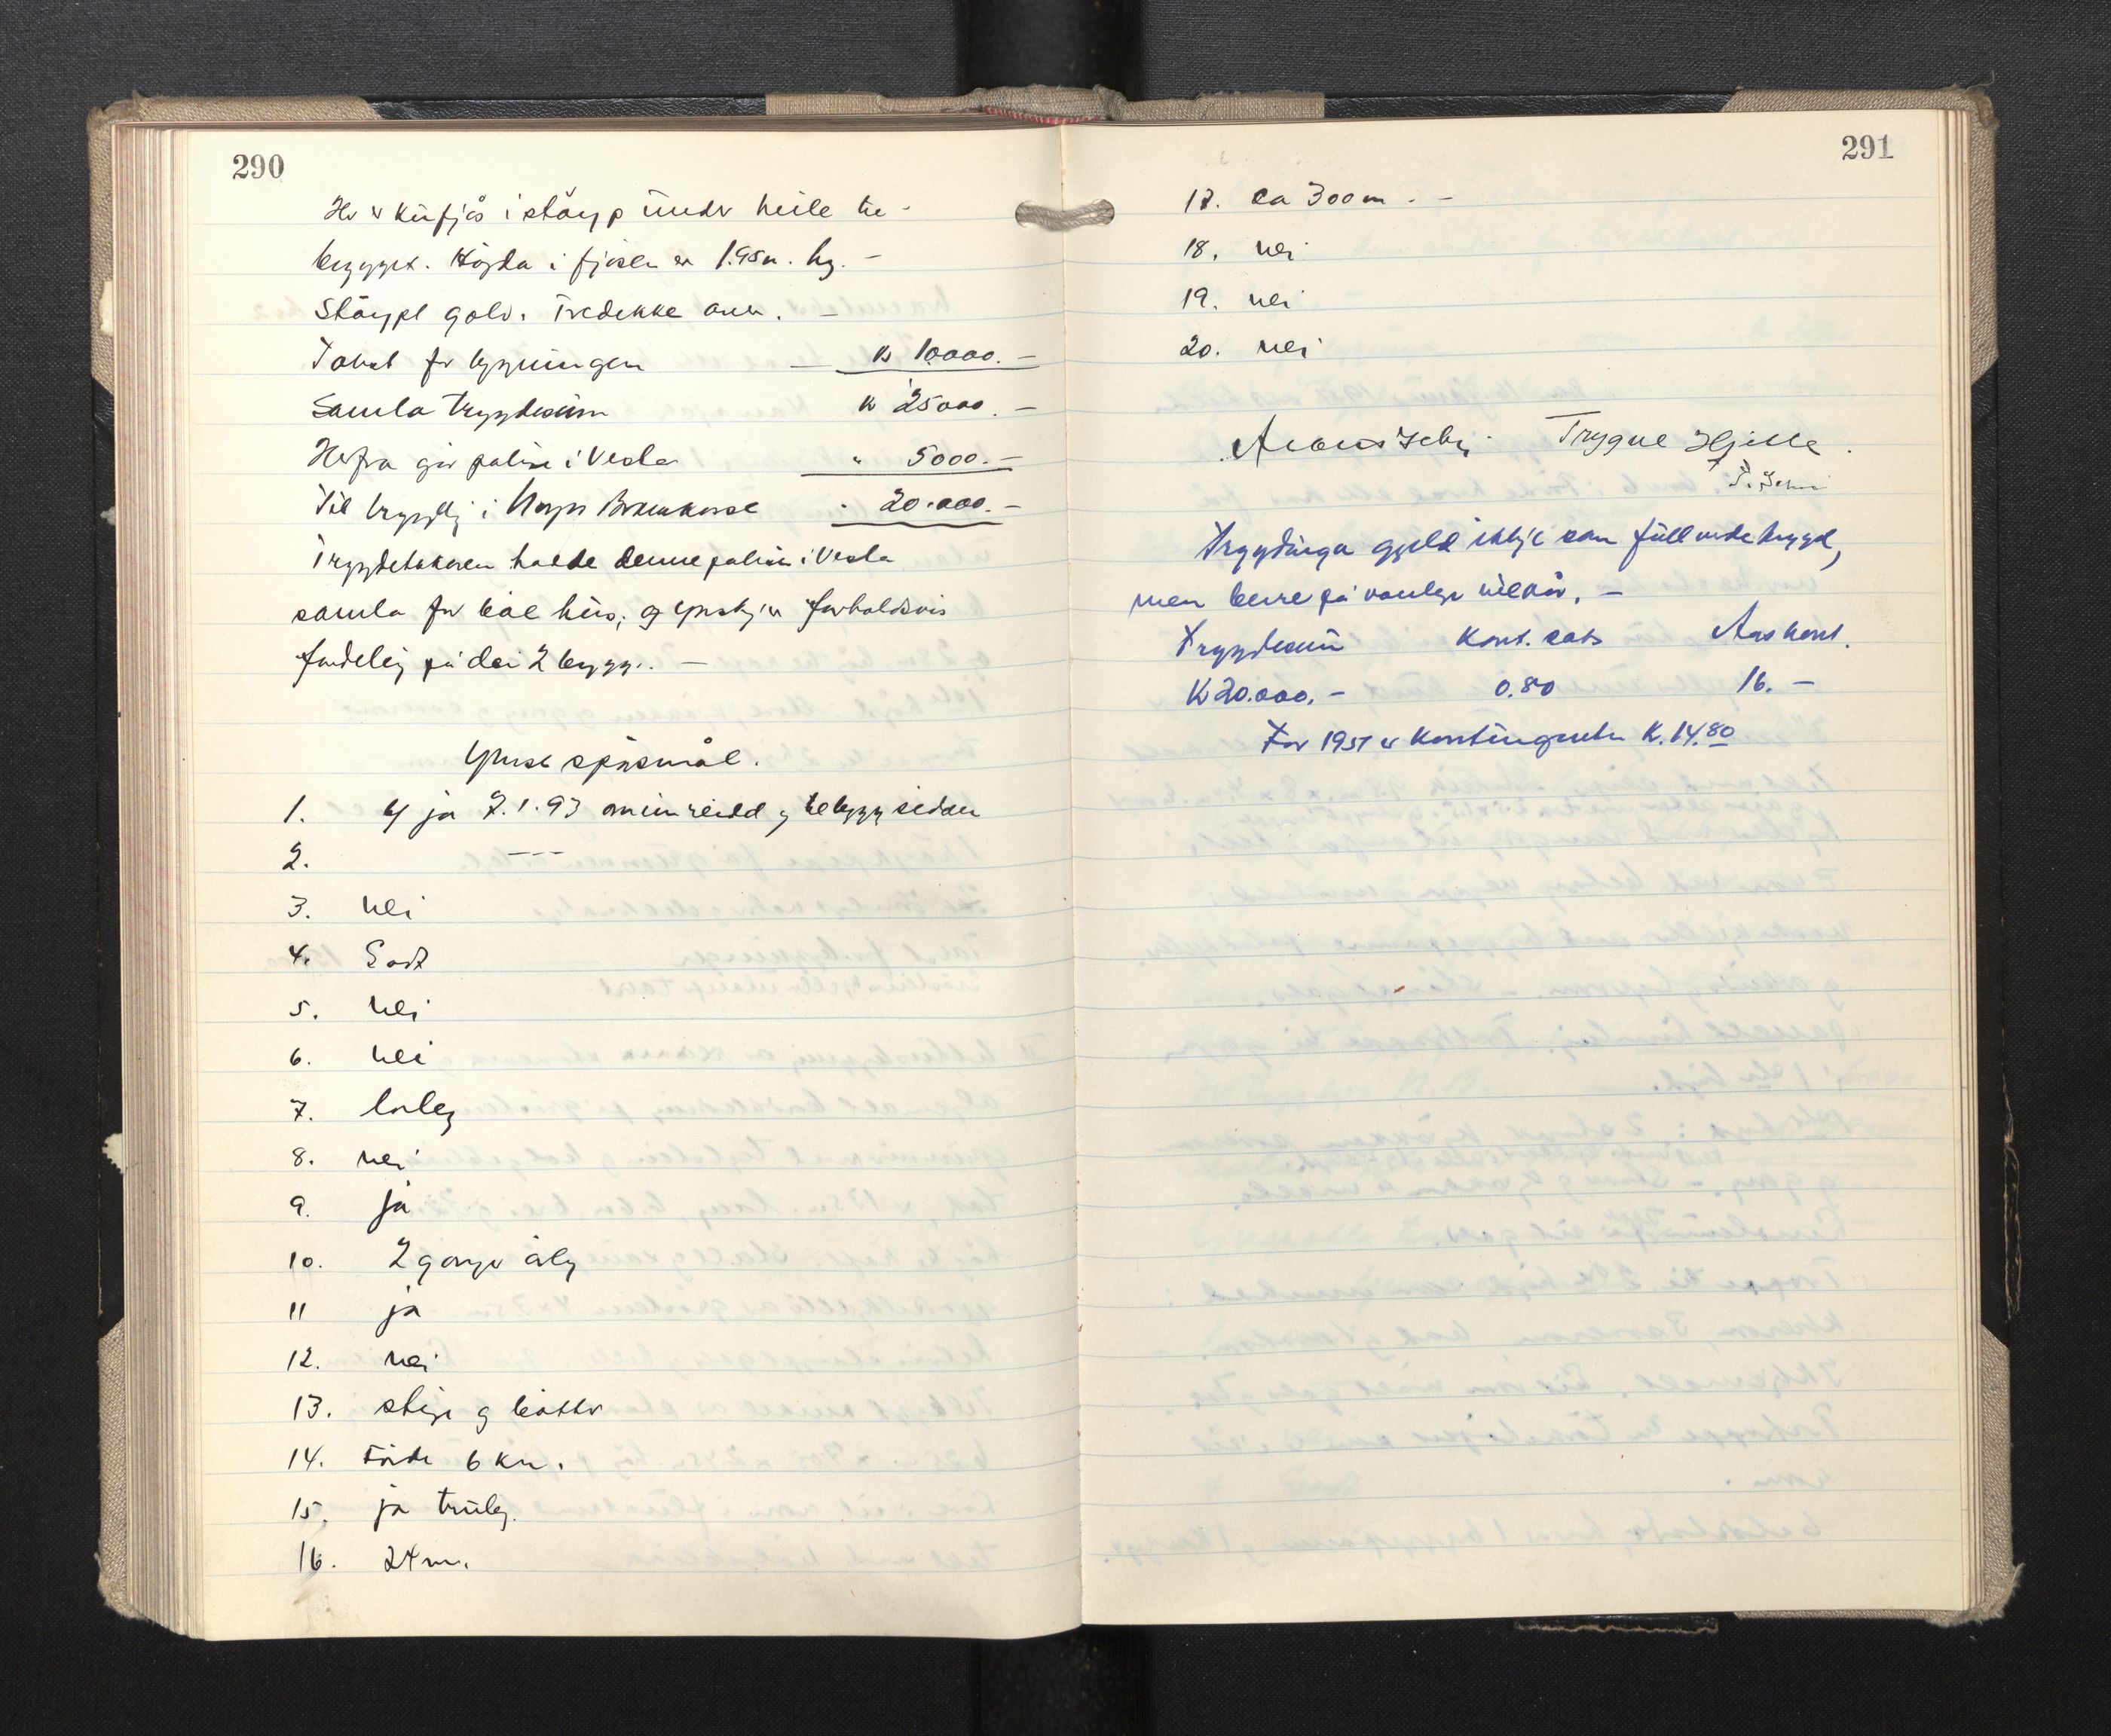 290
Her er kufjøs i støyp under heile tre-
bygget. Høgda i fjøsen er 1.95 m. hg. –
Støypt golv. Tredekke over. –
Takst for bygningen – kr 10000.–
Samla trygdesum kr 25000.–
Herfra går polise i Vesta " 5000.–
Til trygdg i Norges Brannkasse " 20.000.–
Trygdetakeren hadde denne polisen i Vesta
samla for båe hus, og ynskjer forholdsvis
fordeling på dei 2 bygg. –
Ymse spørsmål.
1. ja 7.1.93 ominreidd og tebygg sidan
2. ---
3. nei
4. Godt
5. nei
6. nei
7. lovleg
8. nei
9. ja
10. 2 gonger årleg
11 ja
12. nei
13. stige og bøtter
14. Førde 6 km.
15. ja truleg.
16. 24 m.
291
17. ca 300 m. –
18. nei
19. nei
20. nei
Trygve Hjelle.
Trygdinga gjeld ikkje som fullverdetrygd,
men berre på vanlege vilkår. –
Trygdesum Kont. sats Årskont.
Kr 20.000.– 0.80 16.–
For 1951 er kontingenten kr. 14.80